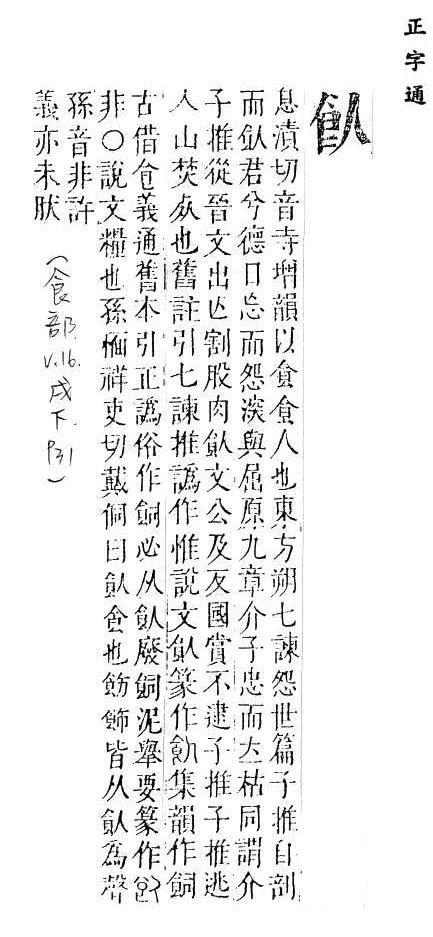 正字通
飤
息漬切音寺增韻以食食人也東方朔七諫怨世篇子推自剖
而飤君兮德日忘而怨深與屈原九章介子忠而立枯同謂介
子推從晉文出亡割股肉飤文公及反國賞不逮子推子推逃
入山焚死也舊註引七諫推譌作惟說文飤篆作飤集韻作飼
古借食義通舊本引正譌俗作飼必从飤廢飼泥舉要篆作
非〇說文糧也孫愐祥吏切戴侗曰飤食也飭飾皆从飤爲聲
孫音非許
義亦未肰
(食部
v.16.
戌下.
P31)